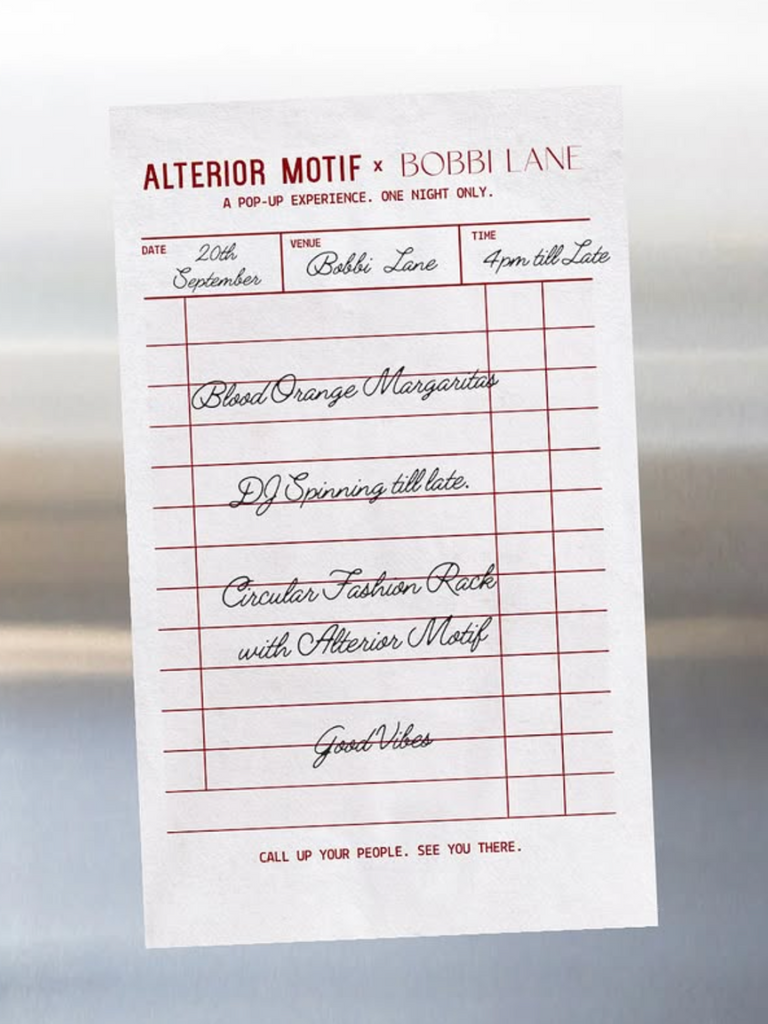 ALTERIOR MOTIF x BOBBI LANE
A POP-UP EXPERIENCE. ONE NIGHT ONLY.
DATE 20th September
VENUE Bobbi Lane
TIME 4pm till Late
Blood Orange Margaritas
DJ Spinning till late.
Circular Fashion Rack
with Alterior Motif
Good Vibes
CALL UP YOUR PEOPLE. SEE YOU THERE.